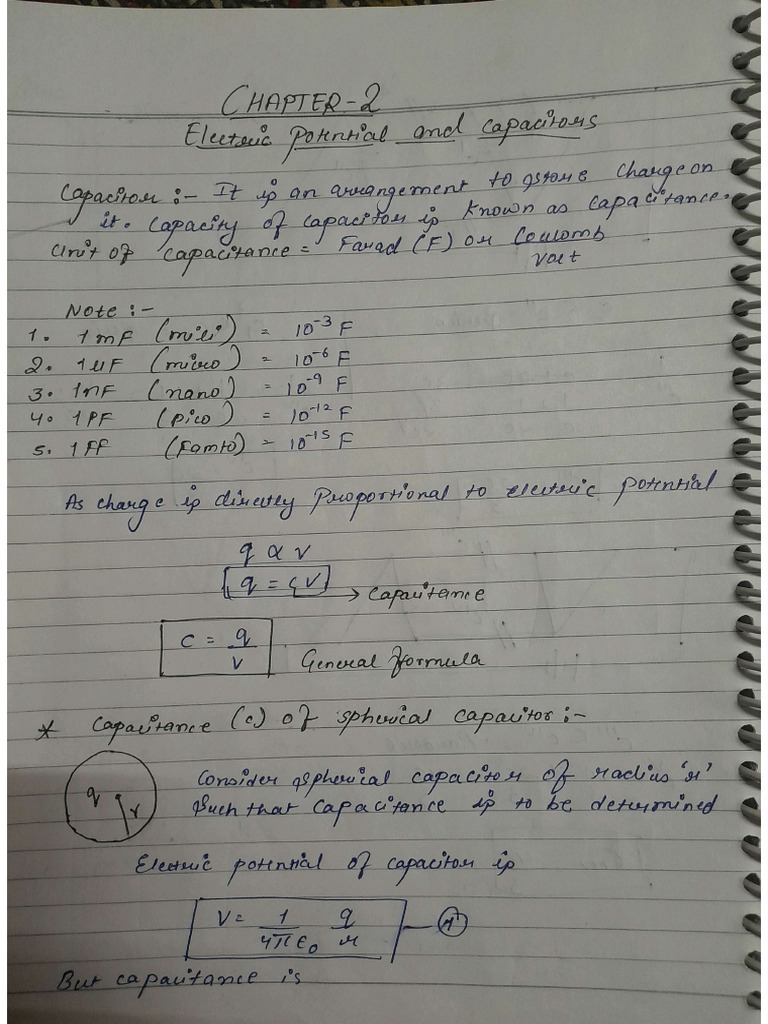 CHAPTER-2
Electric potential and capacitors
Capacitor :- It is an arrangement to store charge on
it. Capacity of capacitor is known as capacitance.
Unit of capacitance = Farad (F) or Coulomb
Volt
Note :-
1. 1 mF (mili) = 10⁻³ F
2. 1 uF (micro) = 10⁻⁶ F
3. 1nF (nano) = 10⁻⁹ F
4. 1PF (pico) = 10⁻¹² F
5. 1 FF (Famto) = 10⁻¹⁵ F
As charge is directly Proportional to electric potential
q ∝ v
q = CV → Capacitance
C = q/v General formula
* Capacitance (c) of spherical capacitor :-
q r
Consider spherical capacitor of radius 'r'
Such that capacitance is to be determined
Electric potential of capacitor is
V = 1/4πε₀ q/r
But capacitance is